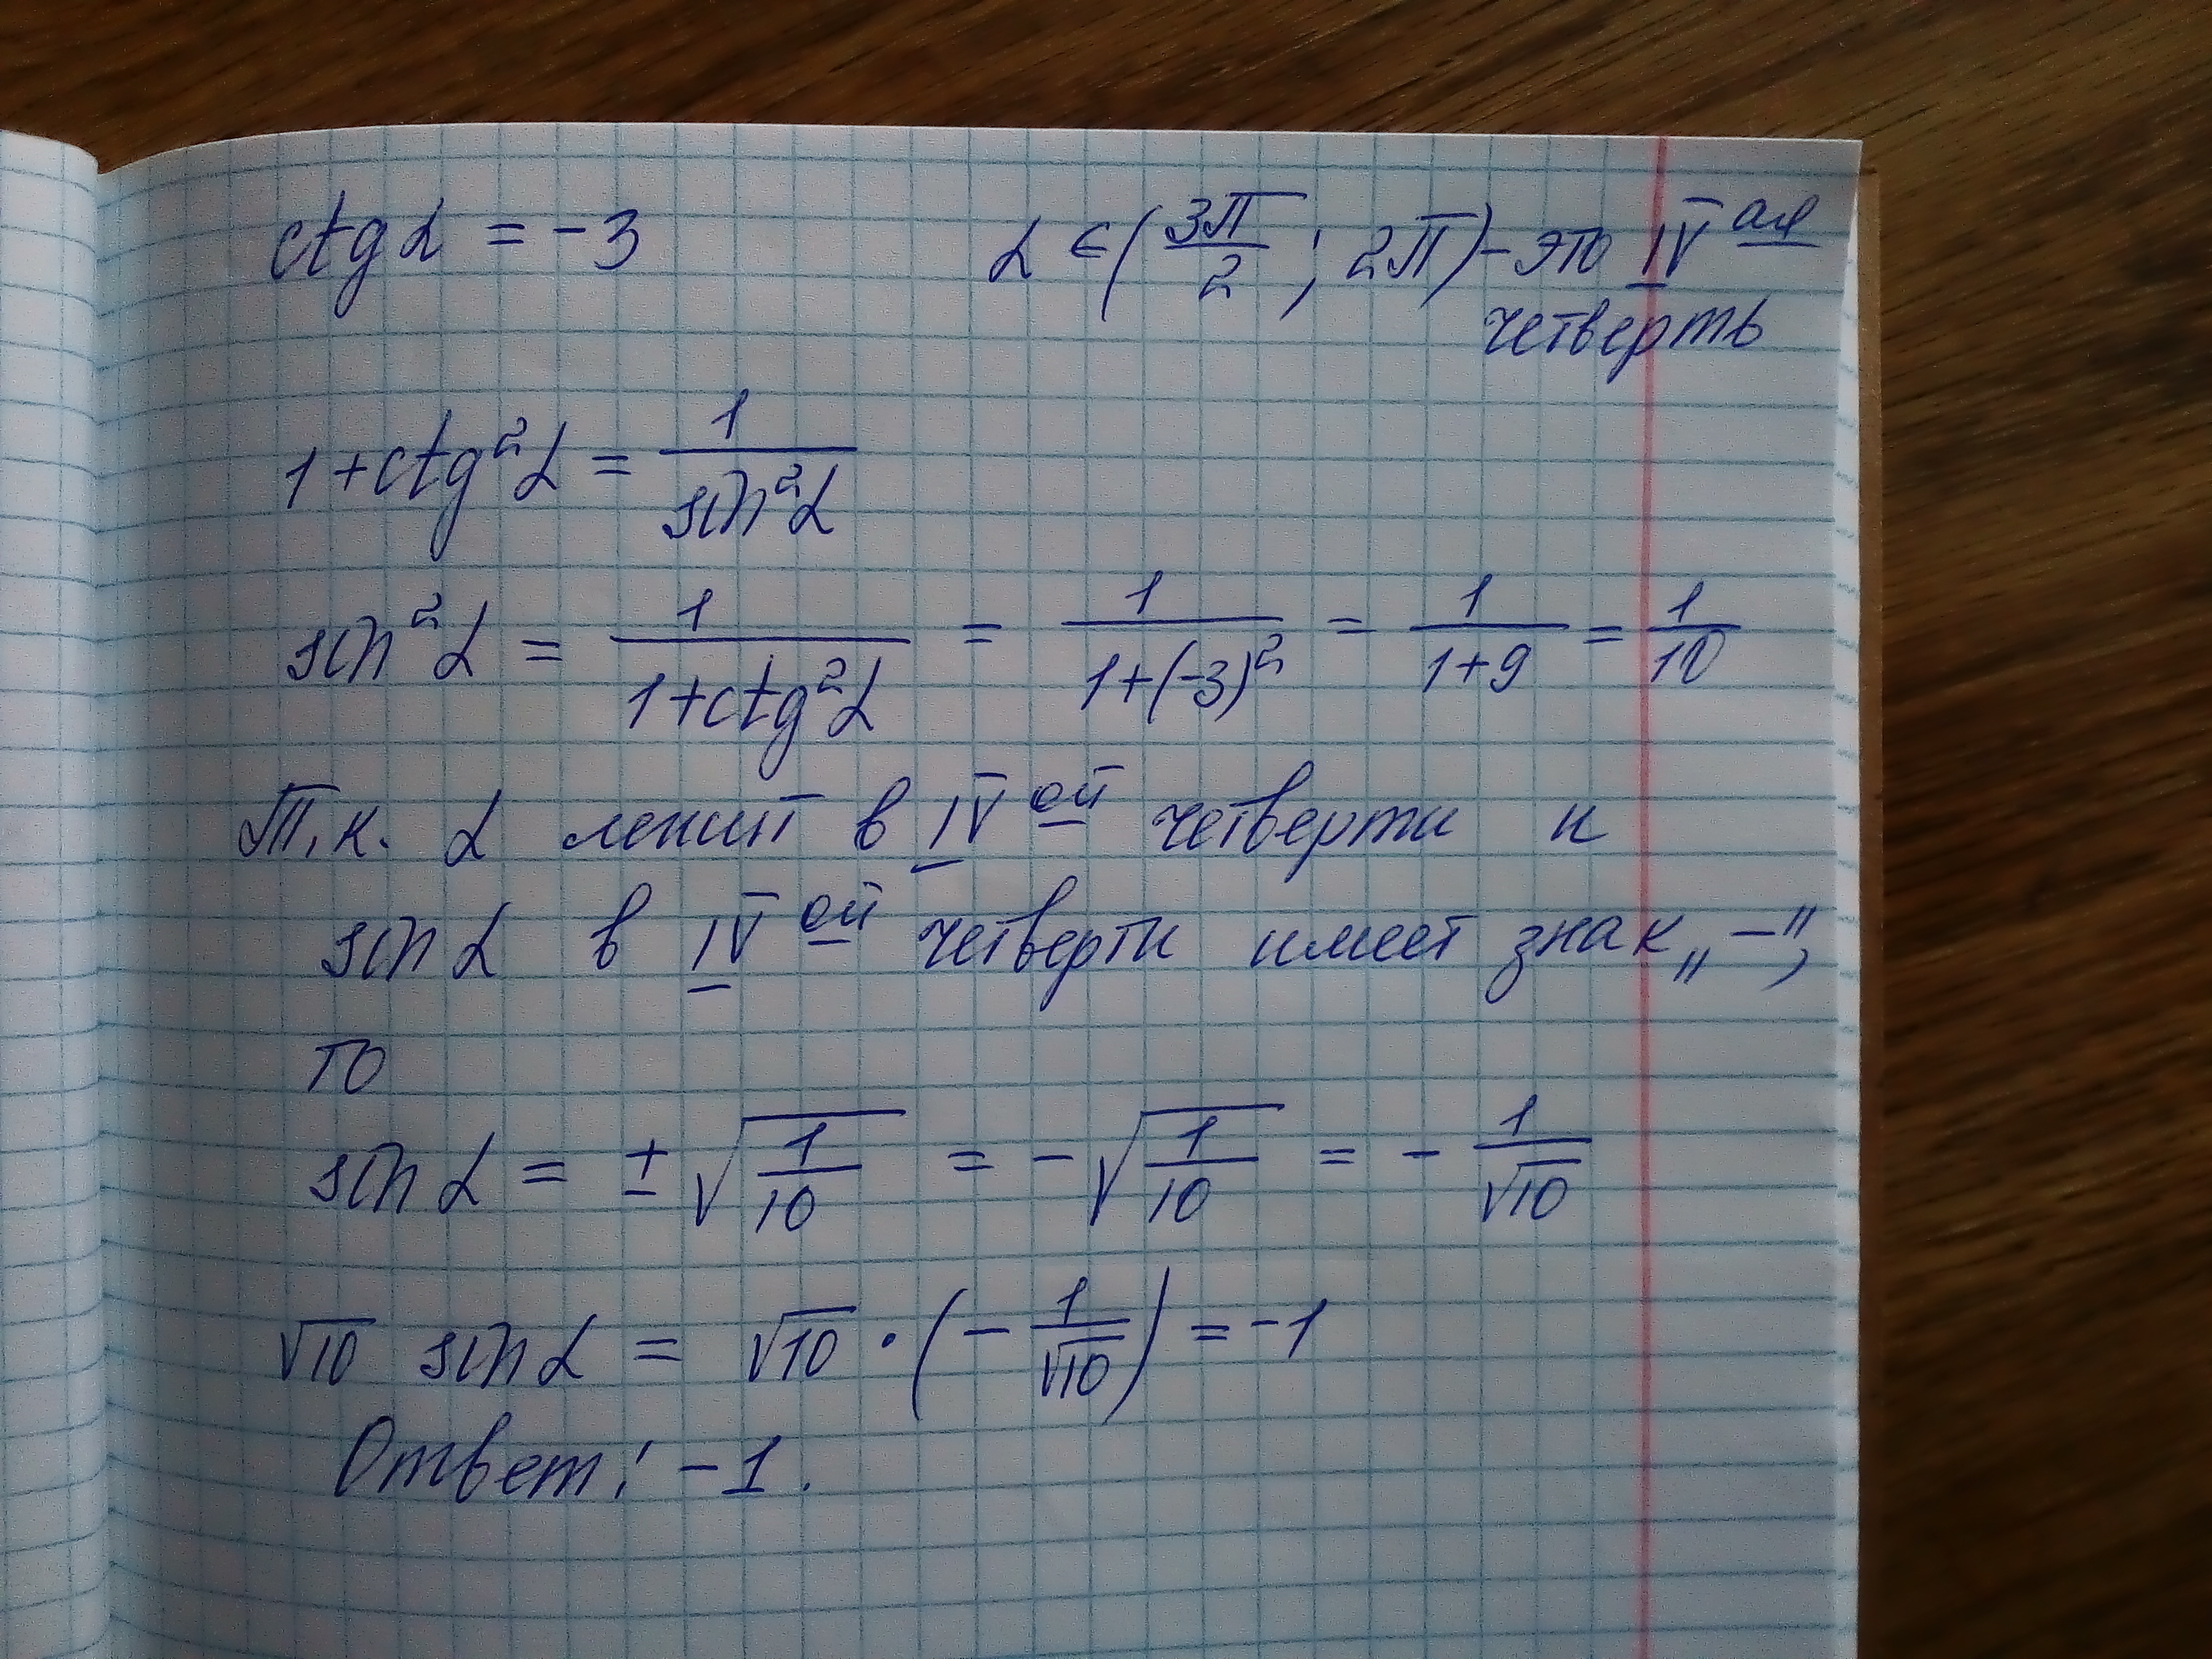 ctg α = -3     α ∈ (3π/2 ; 2π) - это IV ая
четверть
1 + ctg²α = 1/sin²α
sin²α = 1/(1+ctg²α) = 1/(1+(-3)²) = 1/(1+9) = 1/10
Т.к. α лежит в IV ой четверти и
sin α в IV ой четверти имеет знак „-“,
то
sin α = ±√(1/10) = -√(1/10) = - 1/√10
√10 sin α = √10 · (- 1/√10) = -1
Ответ: -1.